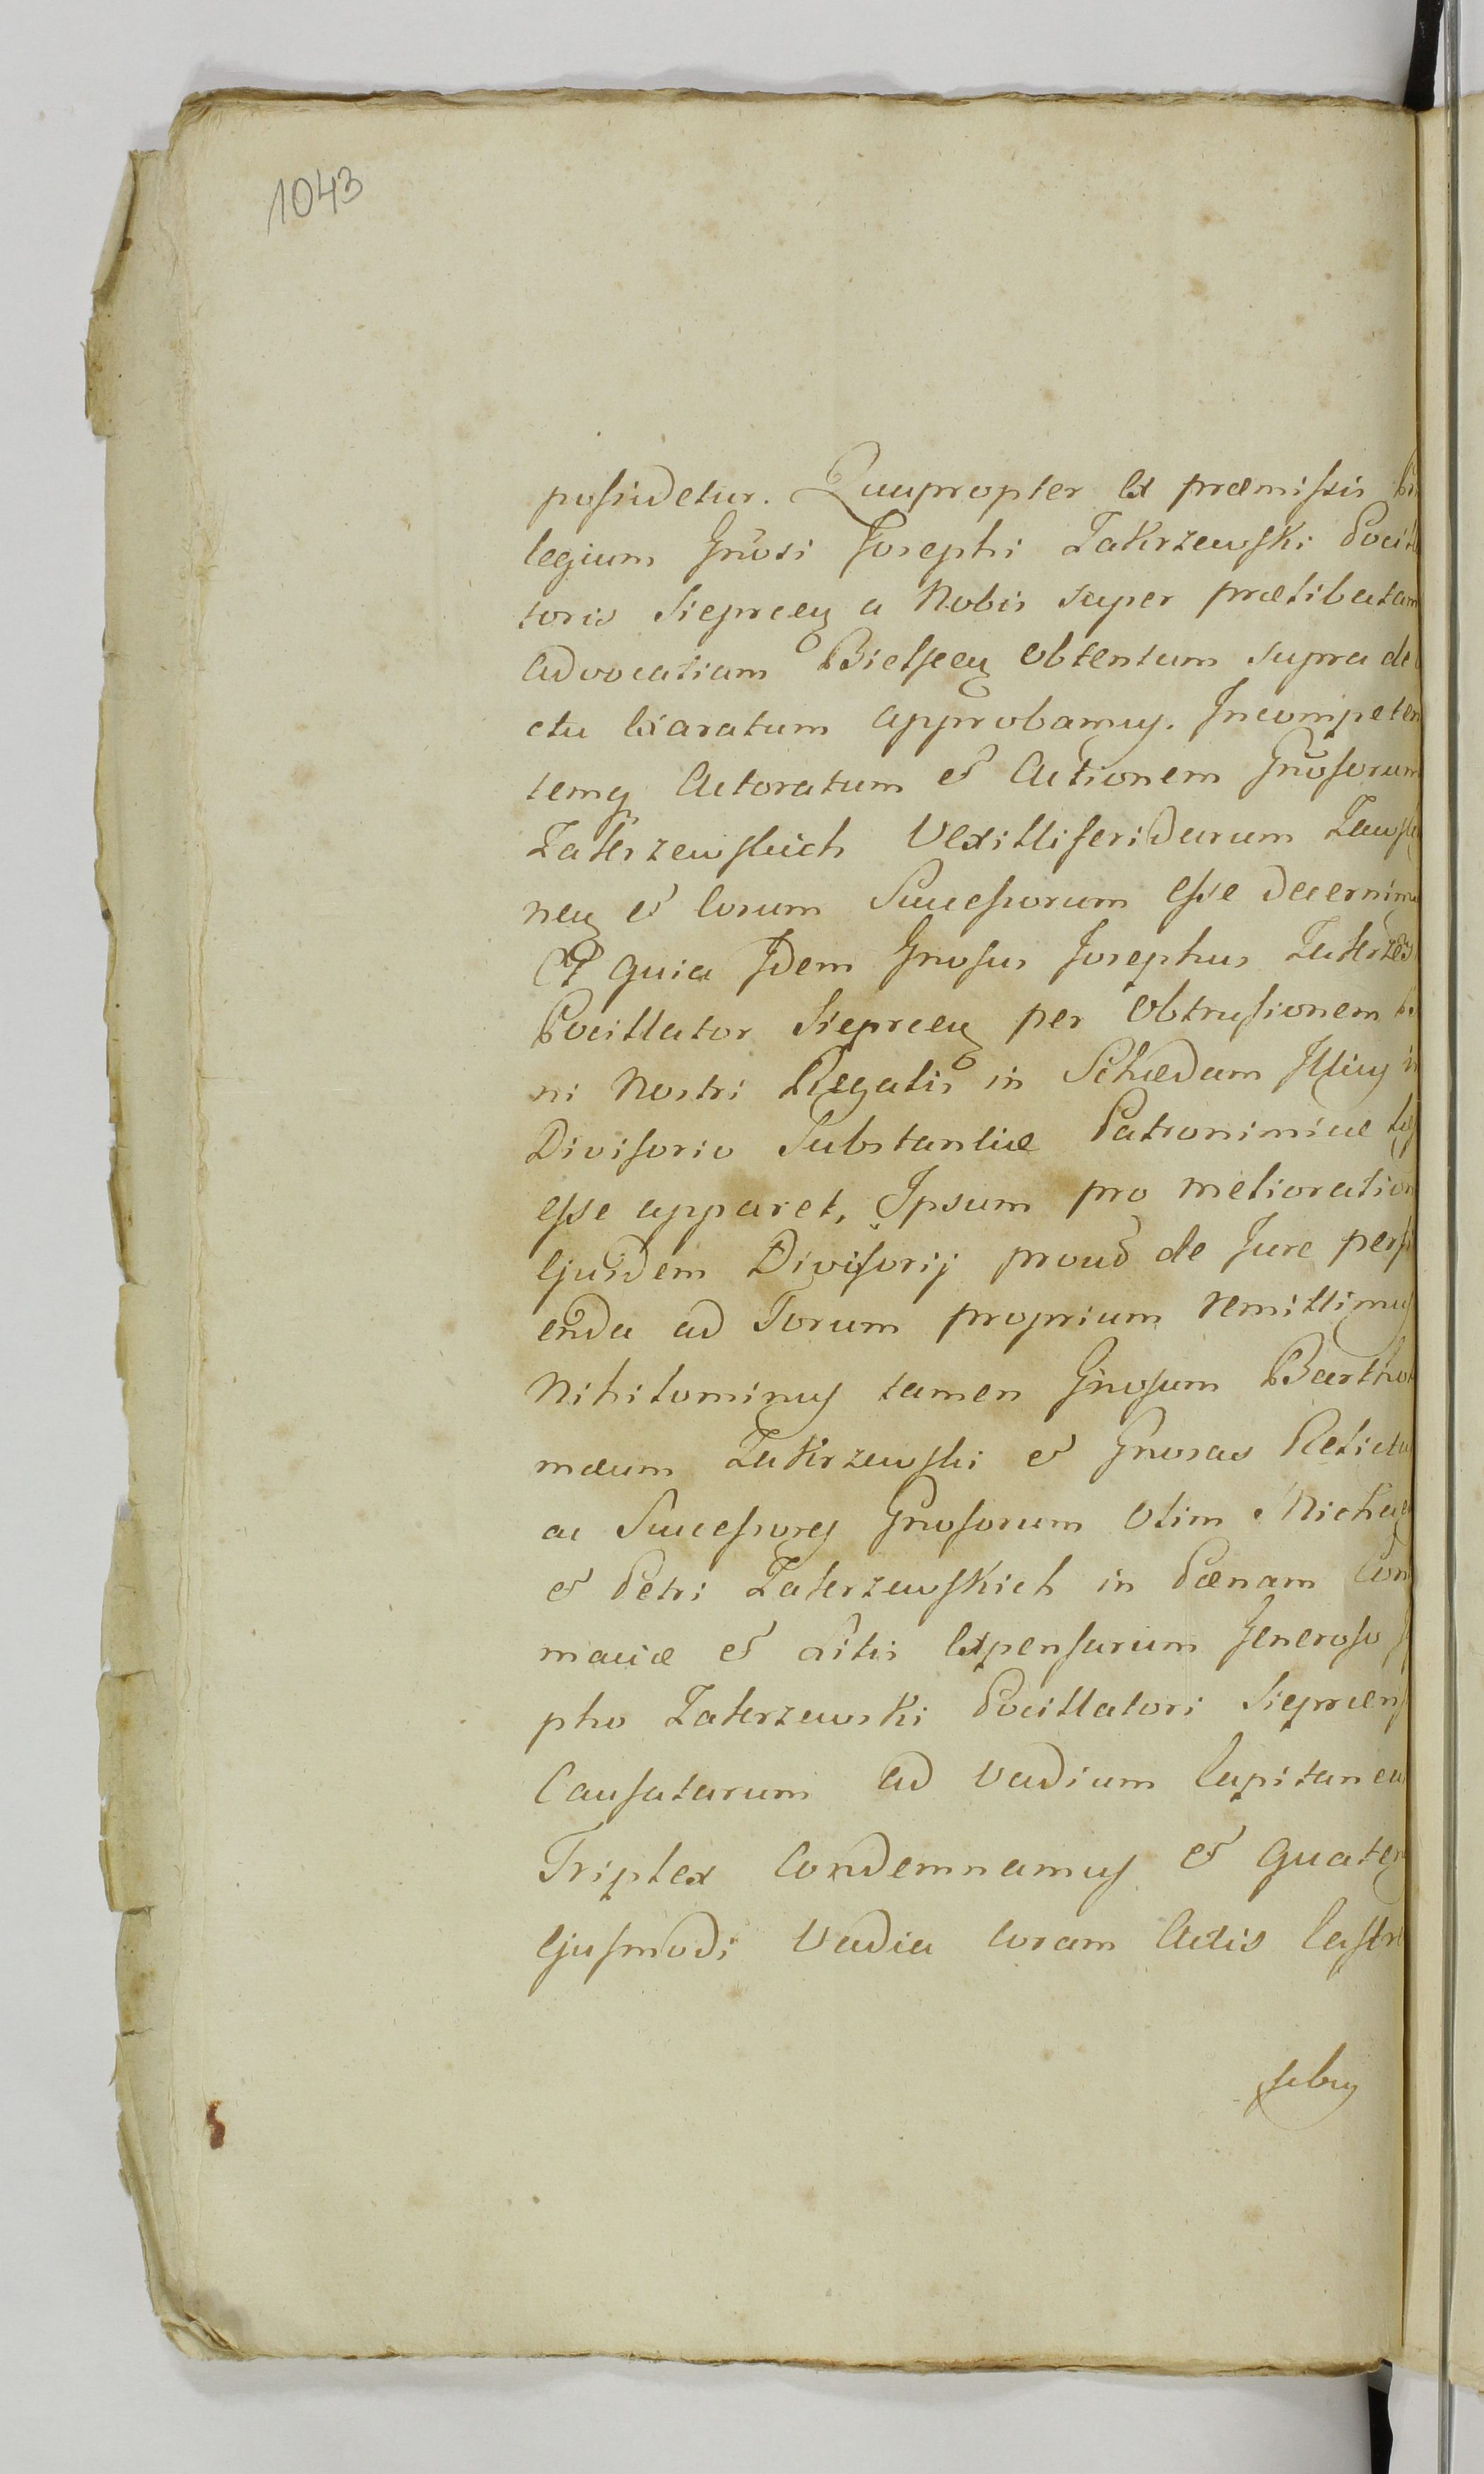 1043
possidetur. Quapropter Ex præmissis
legium Gnosi Josephi Zakrzewski Pocil
toris Siepreeñ a Nobis super prætibatam
Advocatiam Bielsceñ obtentum supra de
ctu Exaratum approbamus. Incompeten
temq Actoratum et Actionem Gnosorum
Zakrzewskich Vexilliferidarum Zawsk
neñ et Eorum Successorum esse decernimu
Et quia Idem Gnosus Josephus Zakrzew
Pocillator Siepreeñ per obtrusionem
ni Nostri Regalis in Schedam Illius in
Divisorio Substantiæ Patronimicæ
esse apparet, Ipsum pro melioration
Ejusdem Divisorij prout de Jure perfi
enda ad Forum proprium remittimus
Nihilominus tamen Gnosum Barthol
mæum Zakrzewski et Gnosas Relicta
ac Successores Gnosorum Olim Michae
et Petri Zakrzewskich in Pænam Con
maciæ et Litis Expensarum Generoso
pho Zakrzewski Pocillatori Siepreen
Causatarum ad Vadium Capitanea
Triplex Condemnamus et quaten
Ejusmodi Vadia Coram Actis Castre
sibus